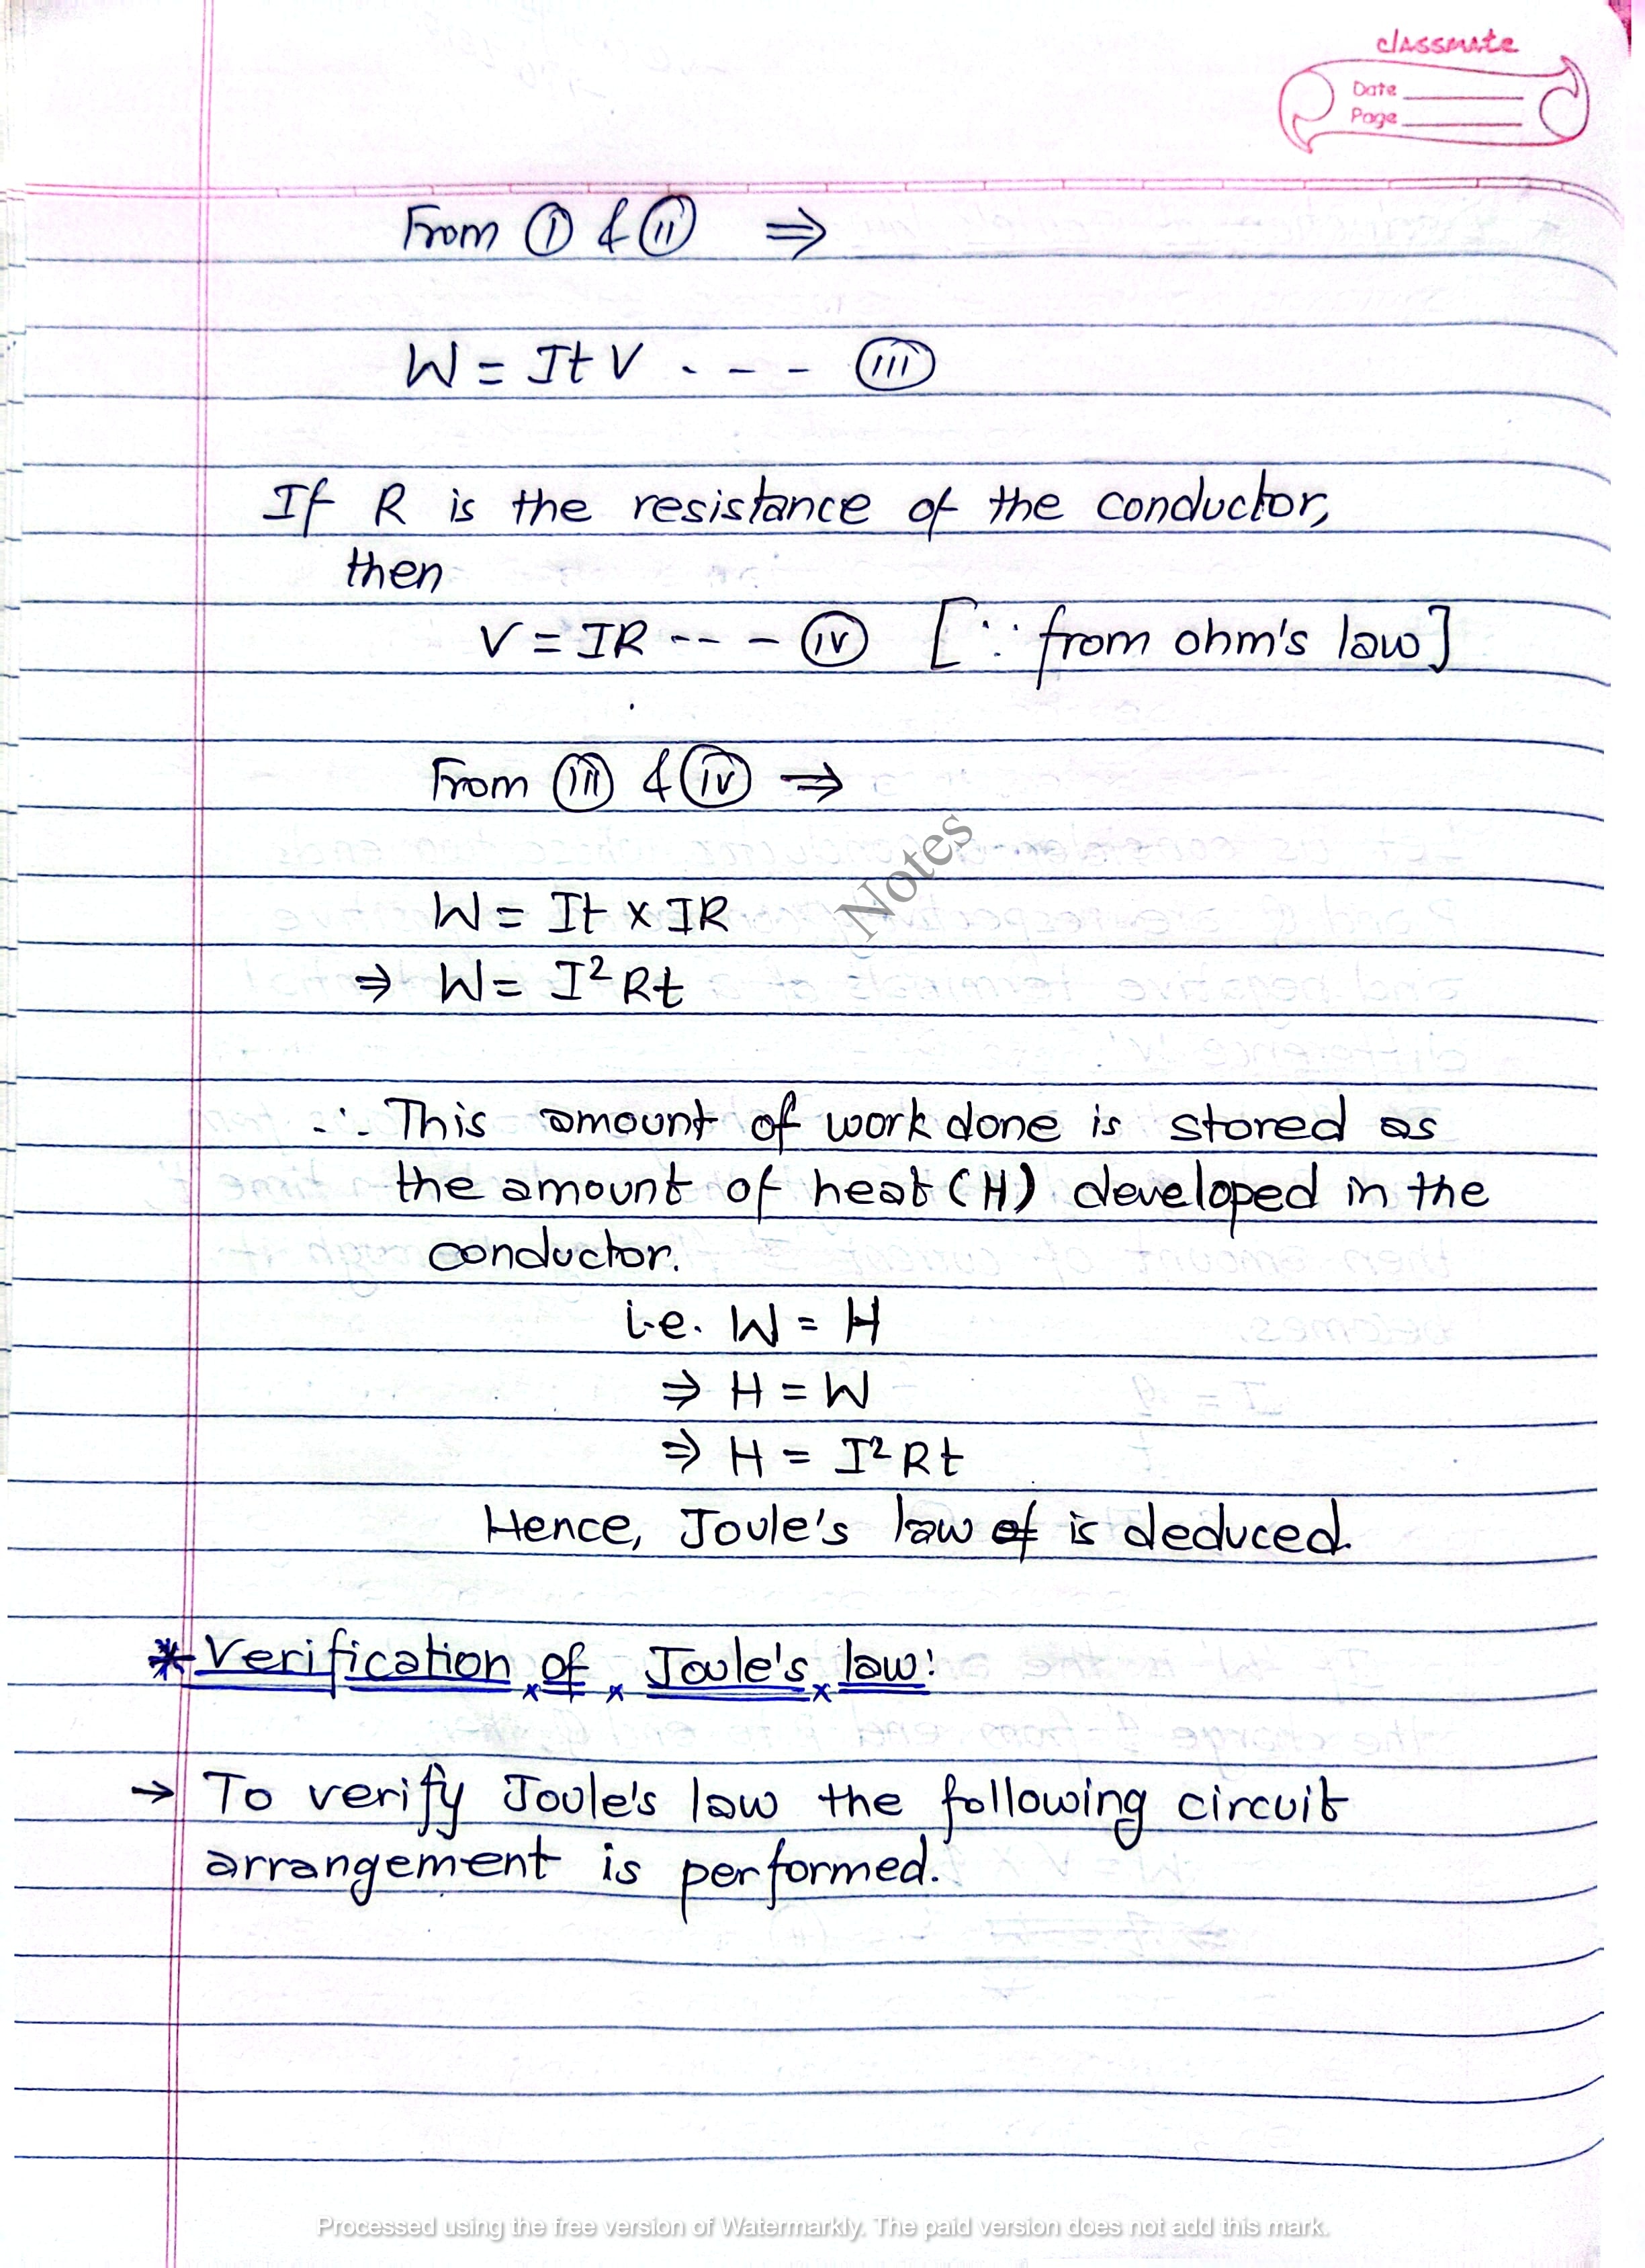 classmate
Date
Page
From (I) & (II) ⇒
W = It V - - - - (III)
If R is the resistance of the conductor,
then
V = IR - - - - (IV) [∵ from ohm's law]
From (III) & (IV) ⇒
Notes
W = It × IR
⇒ W = I² Rt
∴ This amount of work done is stored as
the amount of heat (H) developed in the
conductor.
i.e. W = H
⇒ H = W
⇒ H = I² Rt
Hence, Joule's law of is deduced.
* Verification of Joule's law:
→ To verify Joule's law the following circuit
arrangement is performed.
Processed using the free version of Watermarkly. The paid version does not add this mark.